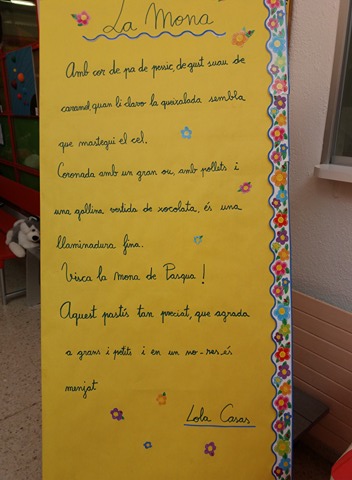 La Mona
Amb cor de pa de pessic, de gust suau de
caramel, quan li clavo la queixalada sembla
que mastegui el cel.
Coronada amb un gran ou, amb pollets i
una gallina vestida de xocolata, és una
llaminadura fina.
Visca la mona de Pasqua!
Aquest pastís tan preciat, que agrada
a grans i petits i en un no-res, és
menjat
Lola Casas